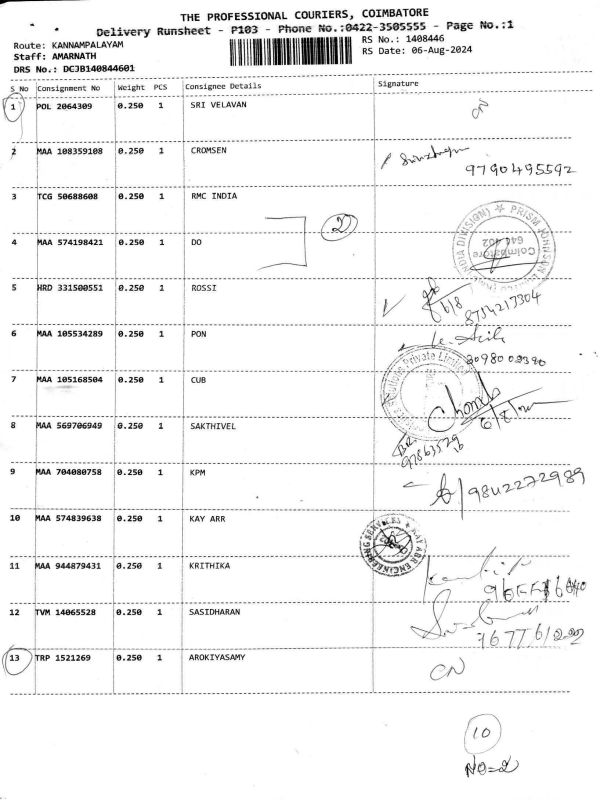 THE PROFESSIONAL COURIERS, COIMBATORE
Delivery Runsheet - P103 - Phone No.:0422-3505555 - Page No.:1
Route: KANNAMPALAYAM RS No.: 1408446
Staff: AMARNATH RS Date: 06-Aug-2024
DRS No.: DCJB140844601
S_No Consignment No Weight PCS Consignee Details Signature
1 POL 2064309 0.250 1 SRI VELAVAN CN
2 MAA 108359108 0.250 1 CROMSEN
9790495592
3 TCG 50688608 0.250 1 RMC INDIA
2
4 MAA 574198421 0.250 1 DO
PRISM JOHNSON LIMITED
Coimbatore
641 402
5 HRD 331500551 0.250 1 ROSSI
6/8
8754217304
6 MAA 105534289 0.250 1 PON
7 MAA 105168504 0.250 1 CUB
Private Limited
6/8/
8 MAA 569706949 0.250 1 SAKTHIVEL
9 MAA 704080758 0.250 1 KPM
9842272989
10 MAA 574839638 0.250 1 KAY ARR
KAY ARR ENGINEERING SERVICES
11 MAA 944879431 0.250 1 KRITHIKA
12 TVM 14065528 0.250 1 SASIDHARAN
13 TRP 1521269 0.250 1 AROKIYASAMY
CN
10
NO=2